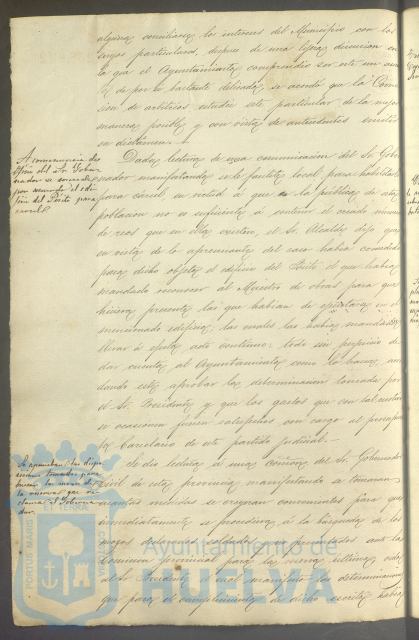 alguna conciliara los intereses del Municipio con los
suyos particulares, despues de una ligera discusion en
la que el Ayuntamiento comprendió ser este un asun
to de por si bastante delicado, se acordó que la Comi
sion de arbitrios estudie este particular de la mejor
manera posible y con vista de antecedentes emita
su dictamen.
A consecuencia de
oficio del Sr Gober
nador se concede
por acuerdo el edi
ficio del Pósito para
carcel.
Dada lectura de una comunicacion del Sr. Gober
nador manifestando se le facilite local para habilitarlo
para cárcel, en virtud á que la pública de esta
poblacion no es suficiente á contener el crecido número
de reos que en ella existen, el Sr. Alcalde dijo que
en vista de lo apremiante del caso habia concedido
para dicho objeto el edificio del Pósito el que habia
mandado reconocer al Maestro de obras para que
hiciera presente las que habian de ejecutarse en el
mencionado edificio, las cuales las habia mandado
llevar á efecto acto continuo: todo sin perjuicio de
dar cuenta al Ayuntamiento como lo hacia, acor
dando este aprobar la determinacion tomada por
el Sr. Presidente y que los gastos que con tal motivo
se ocasionen fuesen satisfechos con cargo al presupues
to Carcelario de este partido judicial.
Se aprueban las dispo
siciones tomadas para
buscar los mozos de
la reserva que re
clama el Goberna
dor.
Se dió lectura á una comunicacion del Sr. Gobernador
civil de esta provincia manifestando se tomaran
cuantas medidas se creyeran convenientes para que
inmediatamente se procediera á la búsqueda de los
mozos declarados soldados y no presentados ante la
Comision provincial para la reserva última, oida
el Sr. Presidente el cual manifestó las determinaciones
que para el cumplimiento de dicho escrito habia
Ayuntamiento de
HUELVA
PORTUS MARIS ET TERRAE